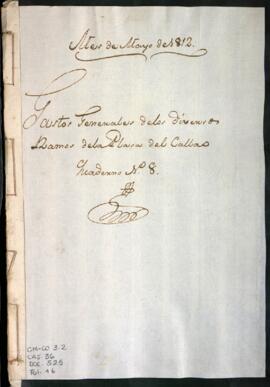 Mes de Mayo de 1812.
Gastos Generales delos diversos
Ramos dela Plasa del Callao
Quaderno N.º 8.
GM-CO 3.2
CAJ: 36
DOC: 525
Fol: 16